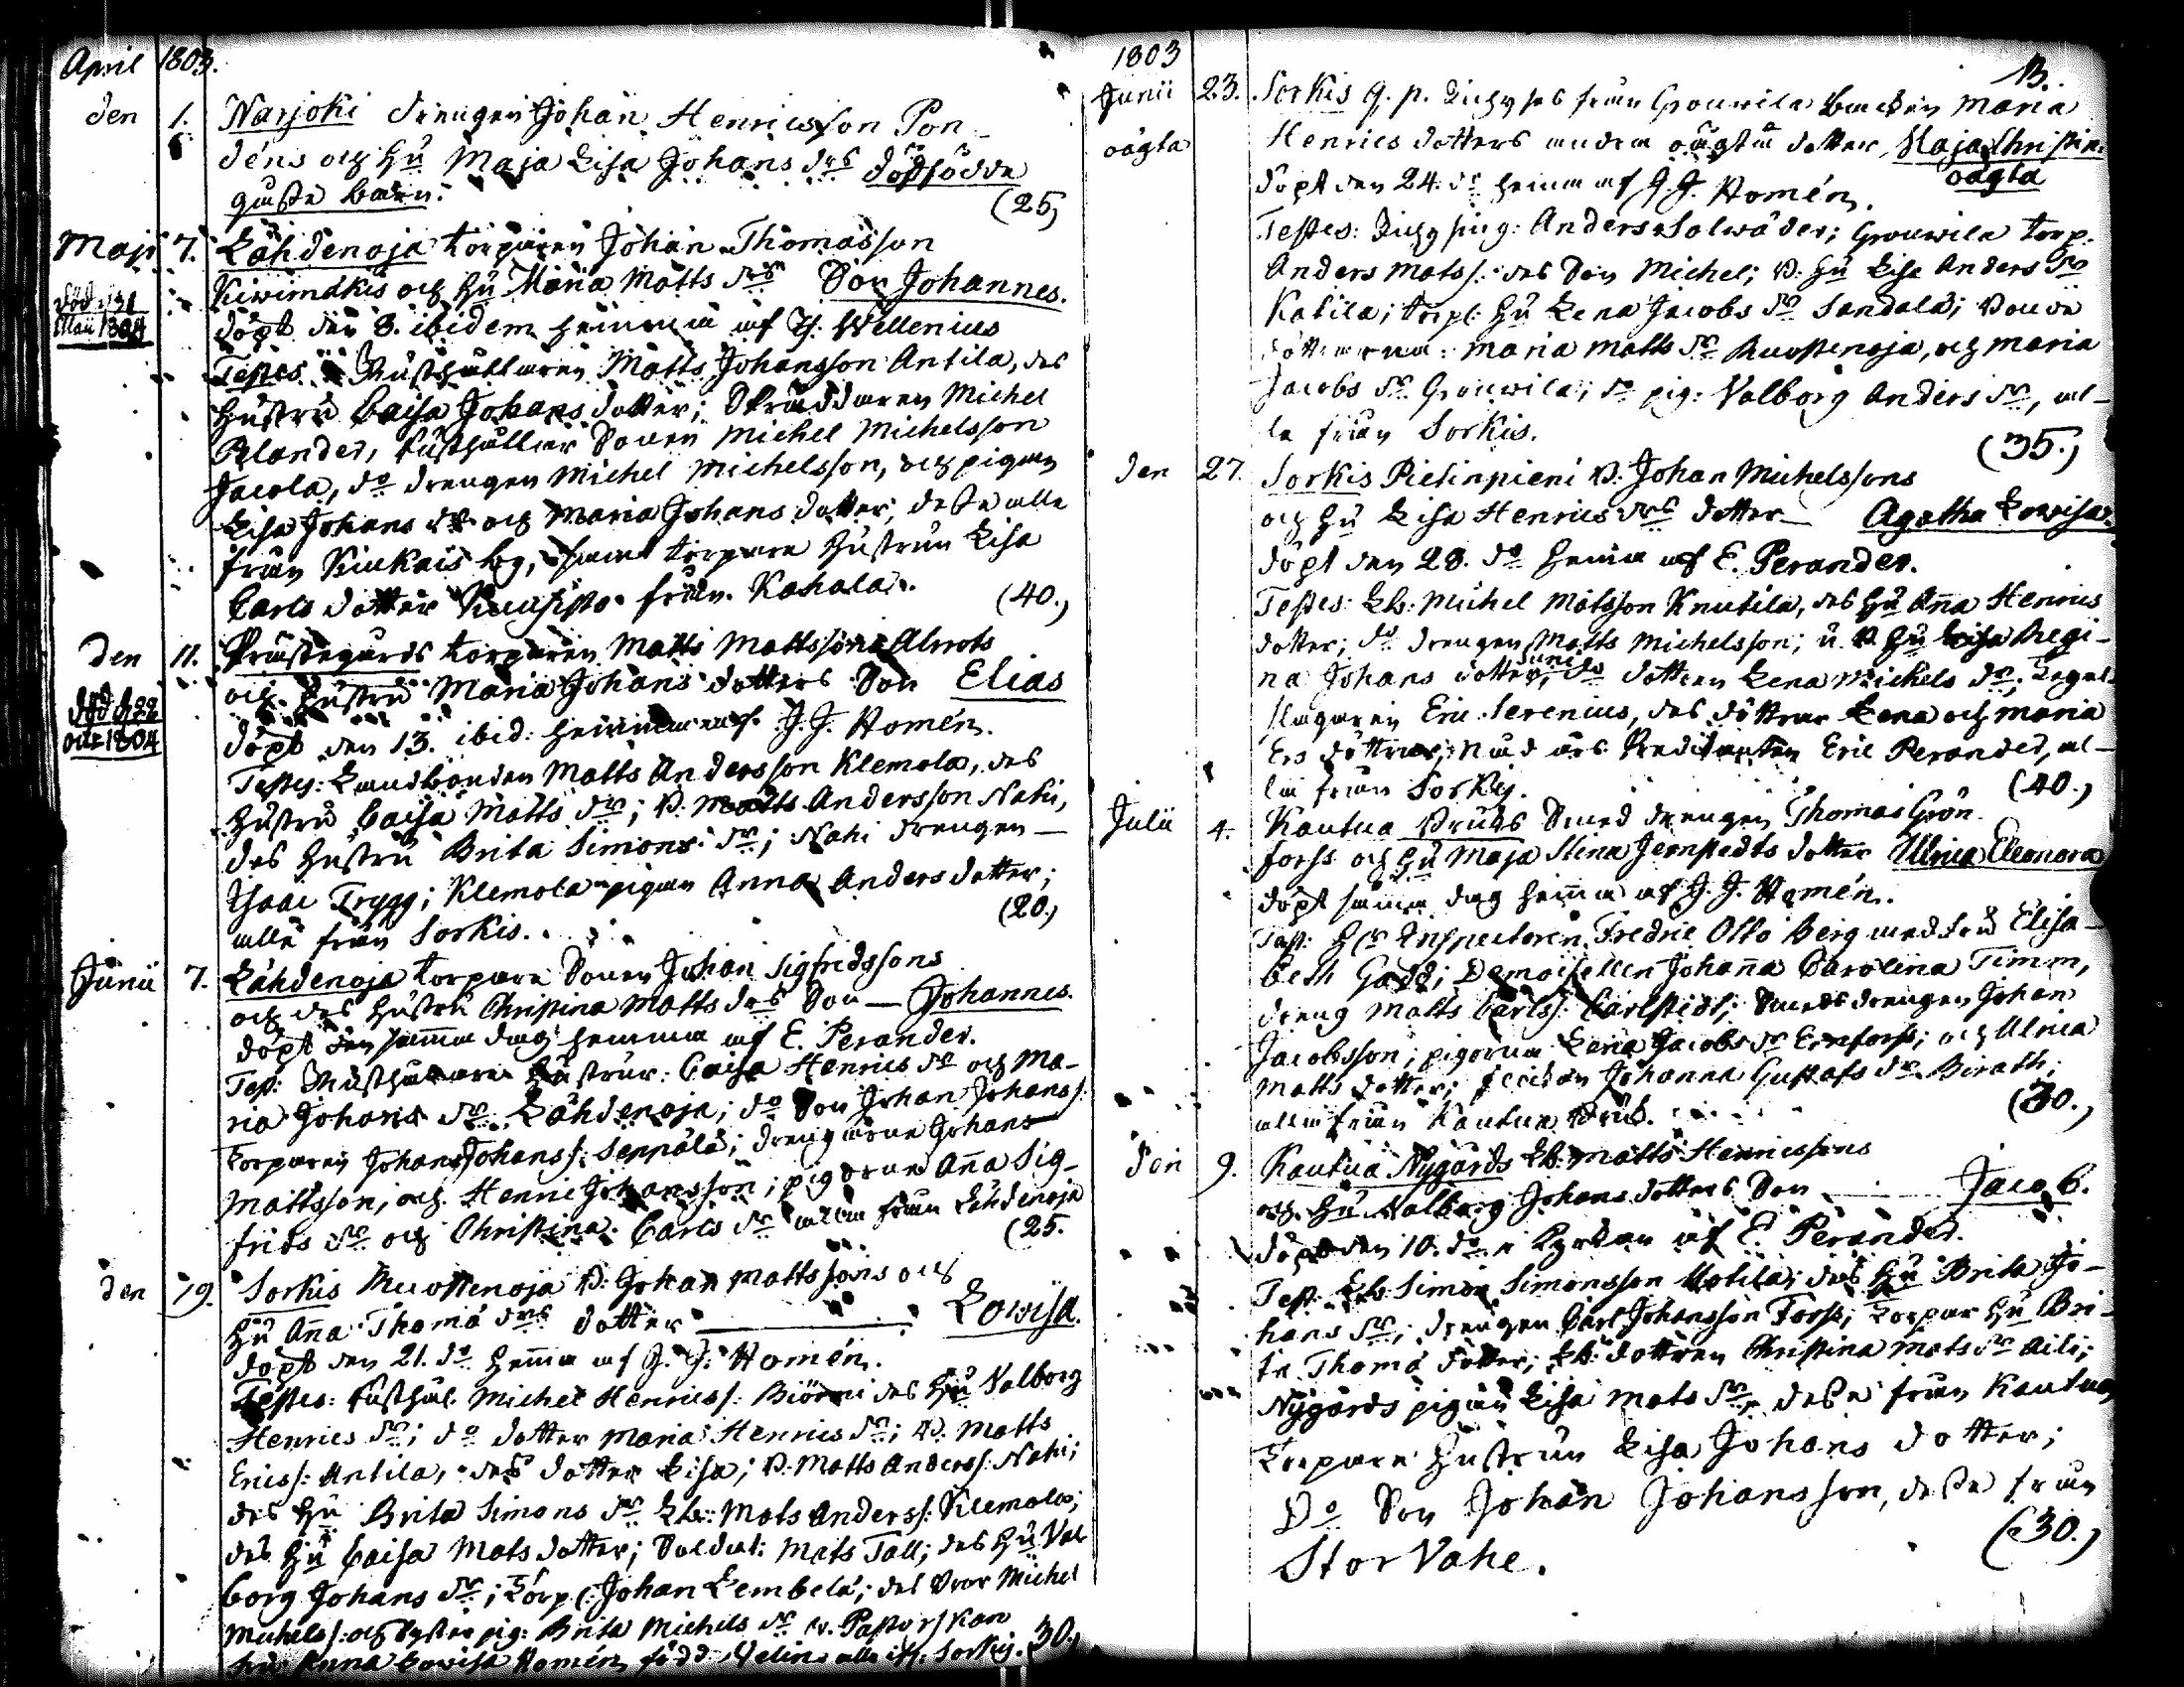 April 1803.
den 1. Narjoki drengen Johan Henricsson Pon-
déns och hu Maja Lisa Johans drs dödfödde
gåsse barn. (25)
Maji 7. Lähdenoja torparen Johan Thomasson
Kiwimäkis och hu Maria Matts drs Son Johannes.
död d 31
Maii 1804
döpt den 8. ibidem hemma af J. Wellenius
Testes: Rusthållaren Matts Johansson Antila, des
hustru Caisa Johans dotter; Skräddaren Michel
Relander, rusthållar Sonen Michel Michelsson
Jacola, do drengen Michel Michelsson, och pigan
Lisa Johans dr och Maria Johans dotter, desse alla
från Kiukais by, samt torpare hustrun Lisa
Carls dotter från Kahala. (40.)
den 11. Prästegårds torparen Matts Mattssons Alrots
och hustru Maria Johans dotters Son Elias
död d 22
oct 1804
döpt den 13. ibid: hemma af J. J. Homén.
Testes: Landbonden Matts Andersson Klemola, des
hustru Caisa Matts dr; B. Matts Andersson Nahi,
des hustru Brita Simons dr; Nahi drengen
Isaac Trygg; Klemola pigan Anna Anders dotter;
alla från Sorkis. (20.)
Junii 7. Lähdenoja torpare Sonen Johan Sigfredssons
och des hustru Christina Matts drs Son — Johannes.
döpt den samma dag hemma af E. Perander.
Test: Rusthållare hustrur: Caisa Henrics dr och Ma-
ria Johans dr Lähdenoja; do Son Johan Johans/:
torparen Johan Johans/: Seppälä; drengarne Johan
Mattsson, och Henric Johansson; pigorna Anna Sig-
frids dr och Christina Carls dr alla från Lähdenoja
(25.
den 19. Sorkis Ruottenoja B. Johan Mattssons och
hu Anna Thomä drs dotter — Lowisa.
döpt den 21. do hemma af J. J. Homén.
Testes: rusthål. Michel Henrics/: Biörni des hu Valborg
Henrics dr; do dotter Maria Henrics dr; B. Matts
Erics/: Antila, des dotter Lisa; B. Matts Anders/: Nahi;
des hu Brita Simons dr Lb: Mats Anders/: Klemola;
des hu Caisa Mats dotter; Soldat: Mats Tall; des hu Val
borg Johans dr; Torp/: Johan Lembelä; des bror Michel
Michels/: och syster pig: Brita Michels dr v. Pastorskan
fru Anna Lowisa Homén född Velin alla ifr. Sorkis. (30.)
1803 13.
Junii 23. Sorkis q. p. från Grouwila backen Maria
oägta Henrics dotters andra oägta dotter, Maja Christina
oägta
döpt den 24. do hemma af J. J. Homén.
Testes: Anders Salwäder; Grouwila torp.
Anders Mats/: des Son Michel; B. hu Lisa Anders dr
Katila; torp/: hu Lena Jacobs dr Sandala; bonde
döttrarna: Maria Matts dr Ruottenoja, och Maria
Jacobs dr Grouwila; do pig: Valborg Anders dr, al-
la från Sorkis. (35.)
den 27. Sorkis Pietinpieni B. Johan Michelssons
och hu Lisa Henrics drs dotter — Agatha Lowisa.
döpt den 28. do hemma af E. Perander.
Testes: Lb: Michel Matsson Knutila, des hu Anna Henrics
dotter; do drengen Matts Michelsson; u. B. hu Lisa Regi-
na Johans dotter, do dottren Lena Michels dr; Tegel-
slagaren Eric Serenius, des döttrar Lena och Maria
Ers döttrar; Nåd års Predikanten Eric Perander, al-
la från Sorkis. (40.)
Julii 4. Kautua Bruks Smed drengen Thomas Grön-
forss och hu Maja Stina Jernstedts dotter Ulrica Eleonora
döpt samma dag hemma af J. J. Homén.
Test: Hr Inspectoren Fredric Otto Berg med fru Elisa-
beth Gadd; Demoisellen Johanna Carolina Timm,
dreng Matts Carls/: Carlstedt; Smeds drengen Johan
Jacobsson; pigorna Lena Jacobs dr Ernforss; och Ulrica
Matts dotter; Johanna Gustafs dr Birath;
alla från Kautua Bruk. (30.)
den 9. Kautua Nygårds Lb: Matts Henricssons
och hu Valborg Johans dotters Son — Jacob.
döpt den 10. do i Kyrkan af E. Perander.
Test: Lb. Simon Simonsson Uotila; des hu Brita Jo-
hans dr; drengen Carl Johansson Forss; Torpar hu Bri-
ta Thomä dotter; Lb: dottren Christina Mats dr Aili;
Nygårds pigan Lisa Mats dr, desse från Kautua,
Torpare hustrun Lisa Johans dotter;
Do Son Johan Johansson, desse från
Stor Vahe. (30.)